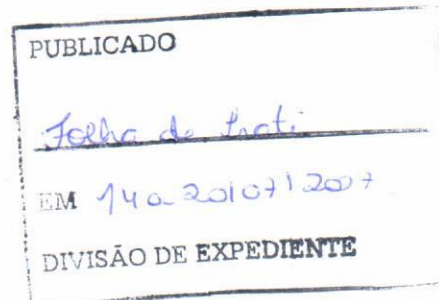 PUBLICADO
Folha de Irati
EM 14 a 20/07/2007
DIVISÃO DE EXPEDIENTE